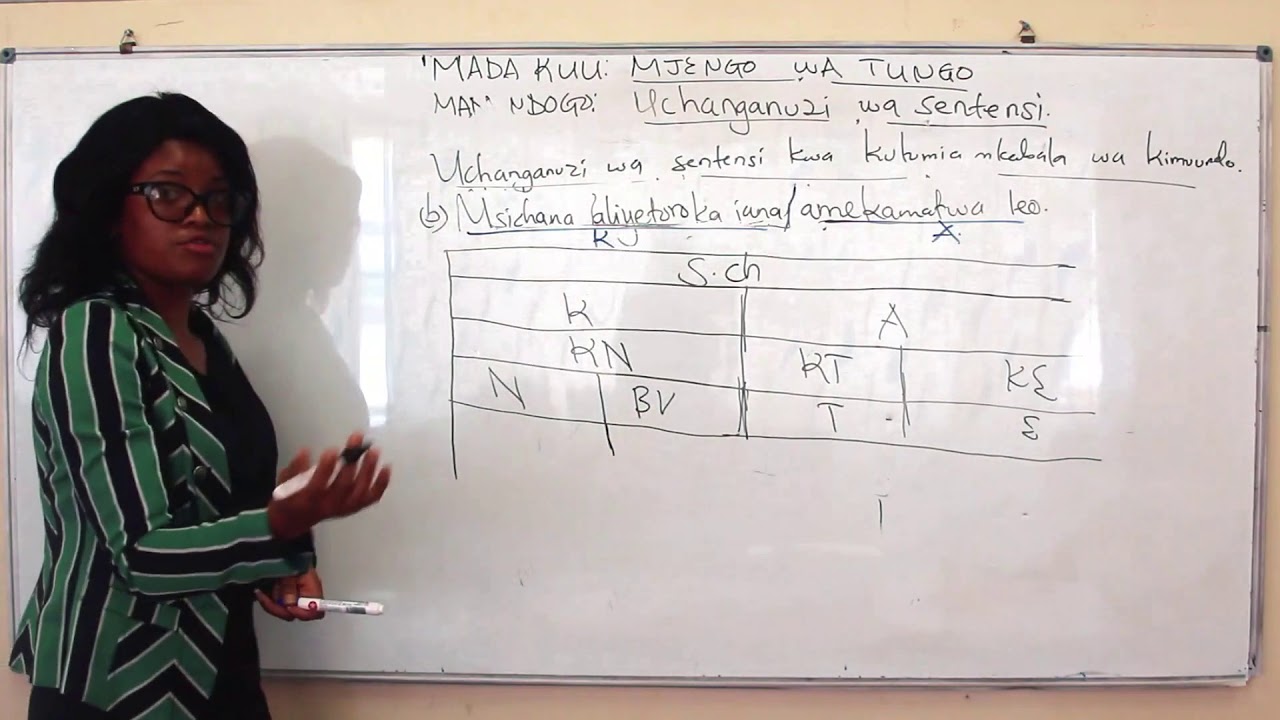 MADA KUU: MJENGO WA TUNGO
NDOGO: Uchanganuzi wa sentensi.
Uchanganuzi wa sentensi kwa kutumia mkabala wa kimuundo.
(b) Msichana aliyetoroka jana/amekamatwa leo.
A
S.ch
K A
KN KT KE
N BV T E